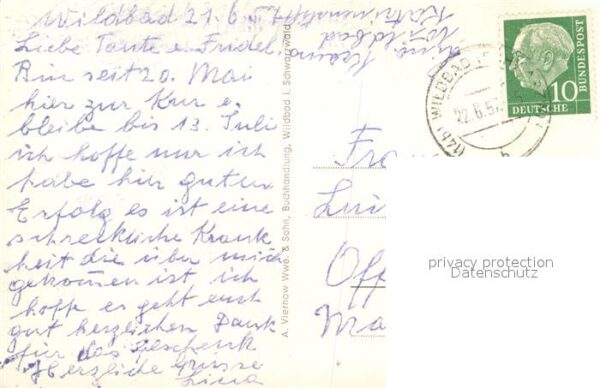 Wildbad 21.6.57
Liebe Tante u. Friedel
Bin seit 20. Mai
hier zur Kur u.
bleibe bis 13. Juli
ich hoffe nur ich
habe hier guten
Erfolg es ist eine
schreckliche Krank
heit die über mich
gekommen ist ich
hoffe es geht euch
gut herzlichen Dank
für das Geschenk
Herzliche Grüsse
Lina
Wildbad
A. Viernow Wwe. & Sohn, Buchhandlung, Wildbad i. Schwarzwald
(14b) WILDBAD
22.6.57
10
DEUTSCHE
BUNDESPOST
Fra
Lui
Off
Ma
privacy protection
Datenschutz